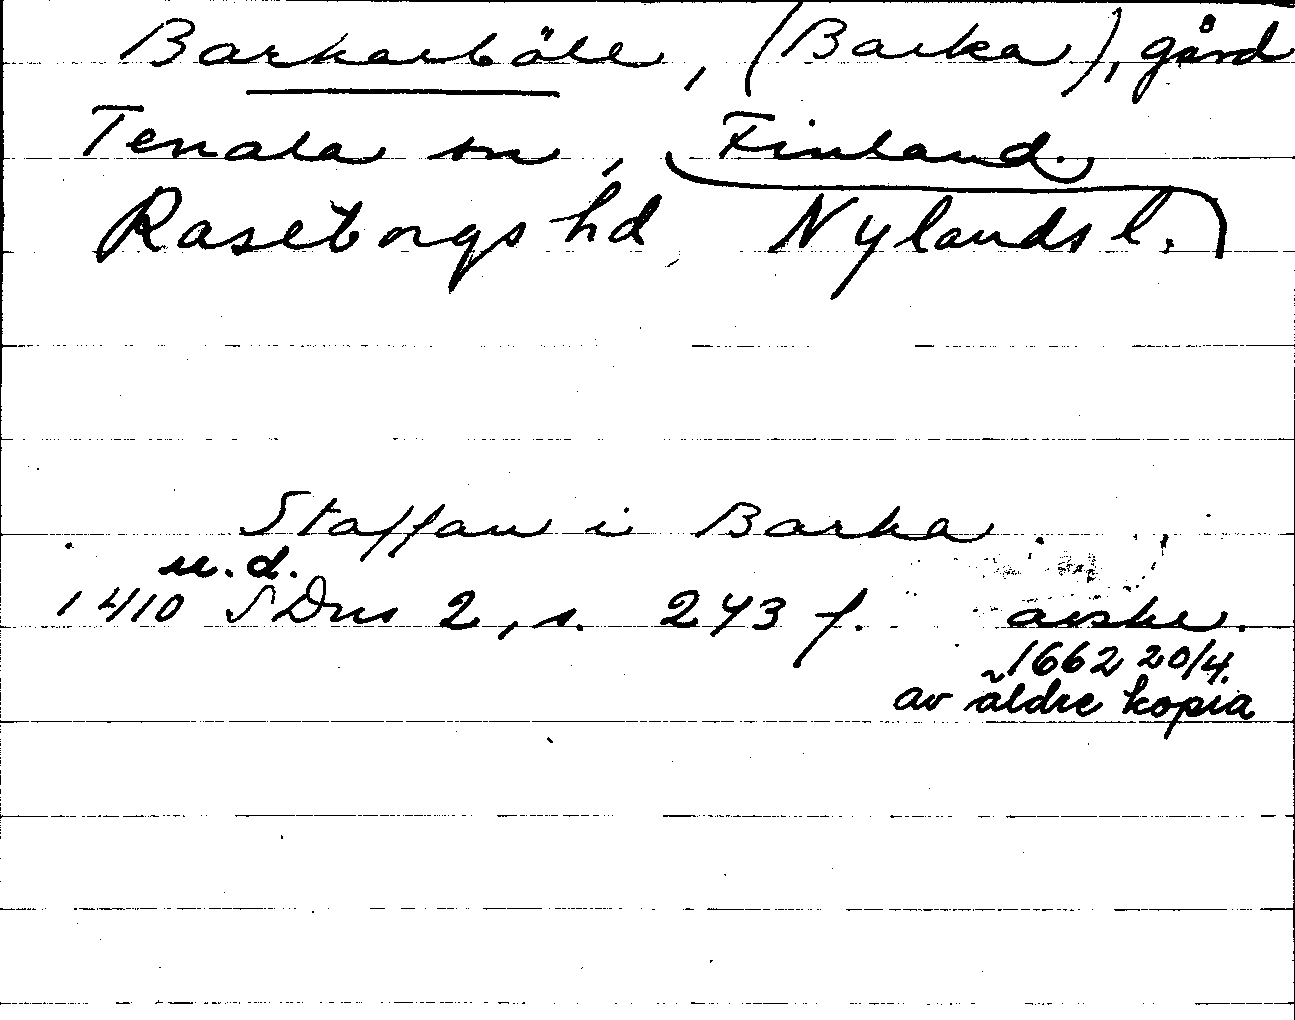 Barkarböle, (Barka), gård
Tenala sn, Finland.
Raseborgs hd, Nylands l.
Staffan i Barka
u.d.
1410 SDns 2, s. 243 f. avskr.
1662 20/4.
av äldre kopia